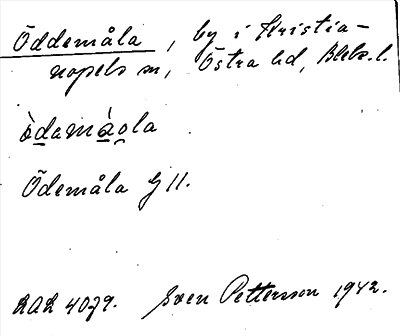 Öddemåla, by i Kristia-
nopels sn, Östra hd, Blek. l.
òdamàola
Ödemåla GII.
LAL 4079. Sven Pettersson 1942.